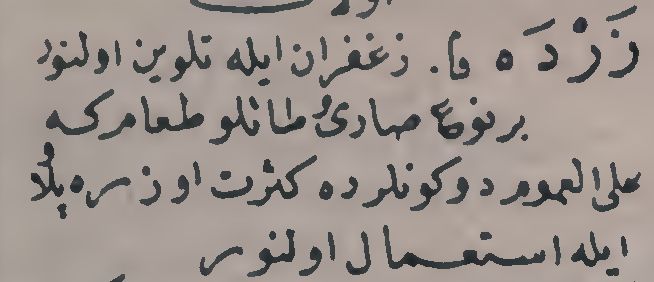 زَرْدَه فا. زغفران ایله تلوین اولنور
بر نوع صاری طاتلو طعام‌درکه
علی العموم دوکونلرده کثرت اوزره پلاو
ایله استعمال اولنور